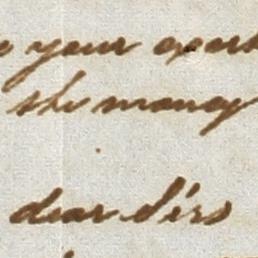 your
the money
dear Sirs